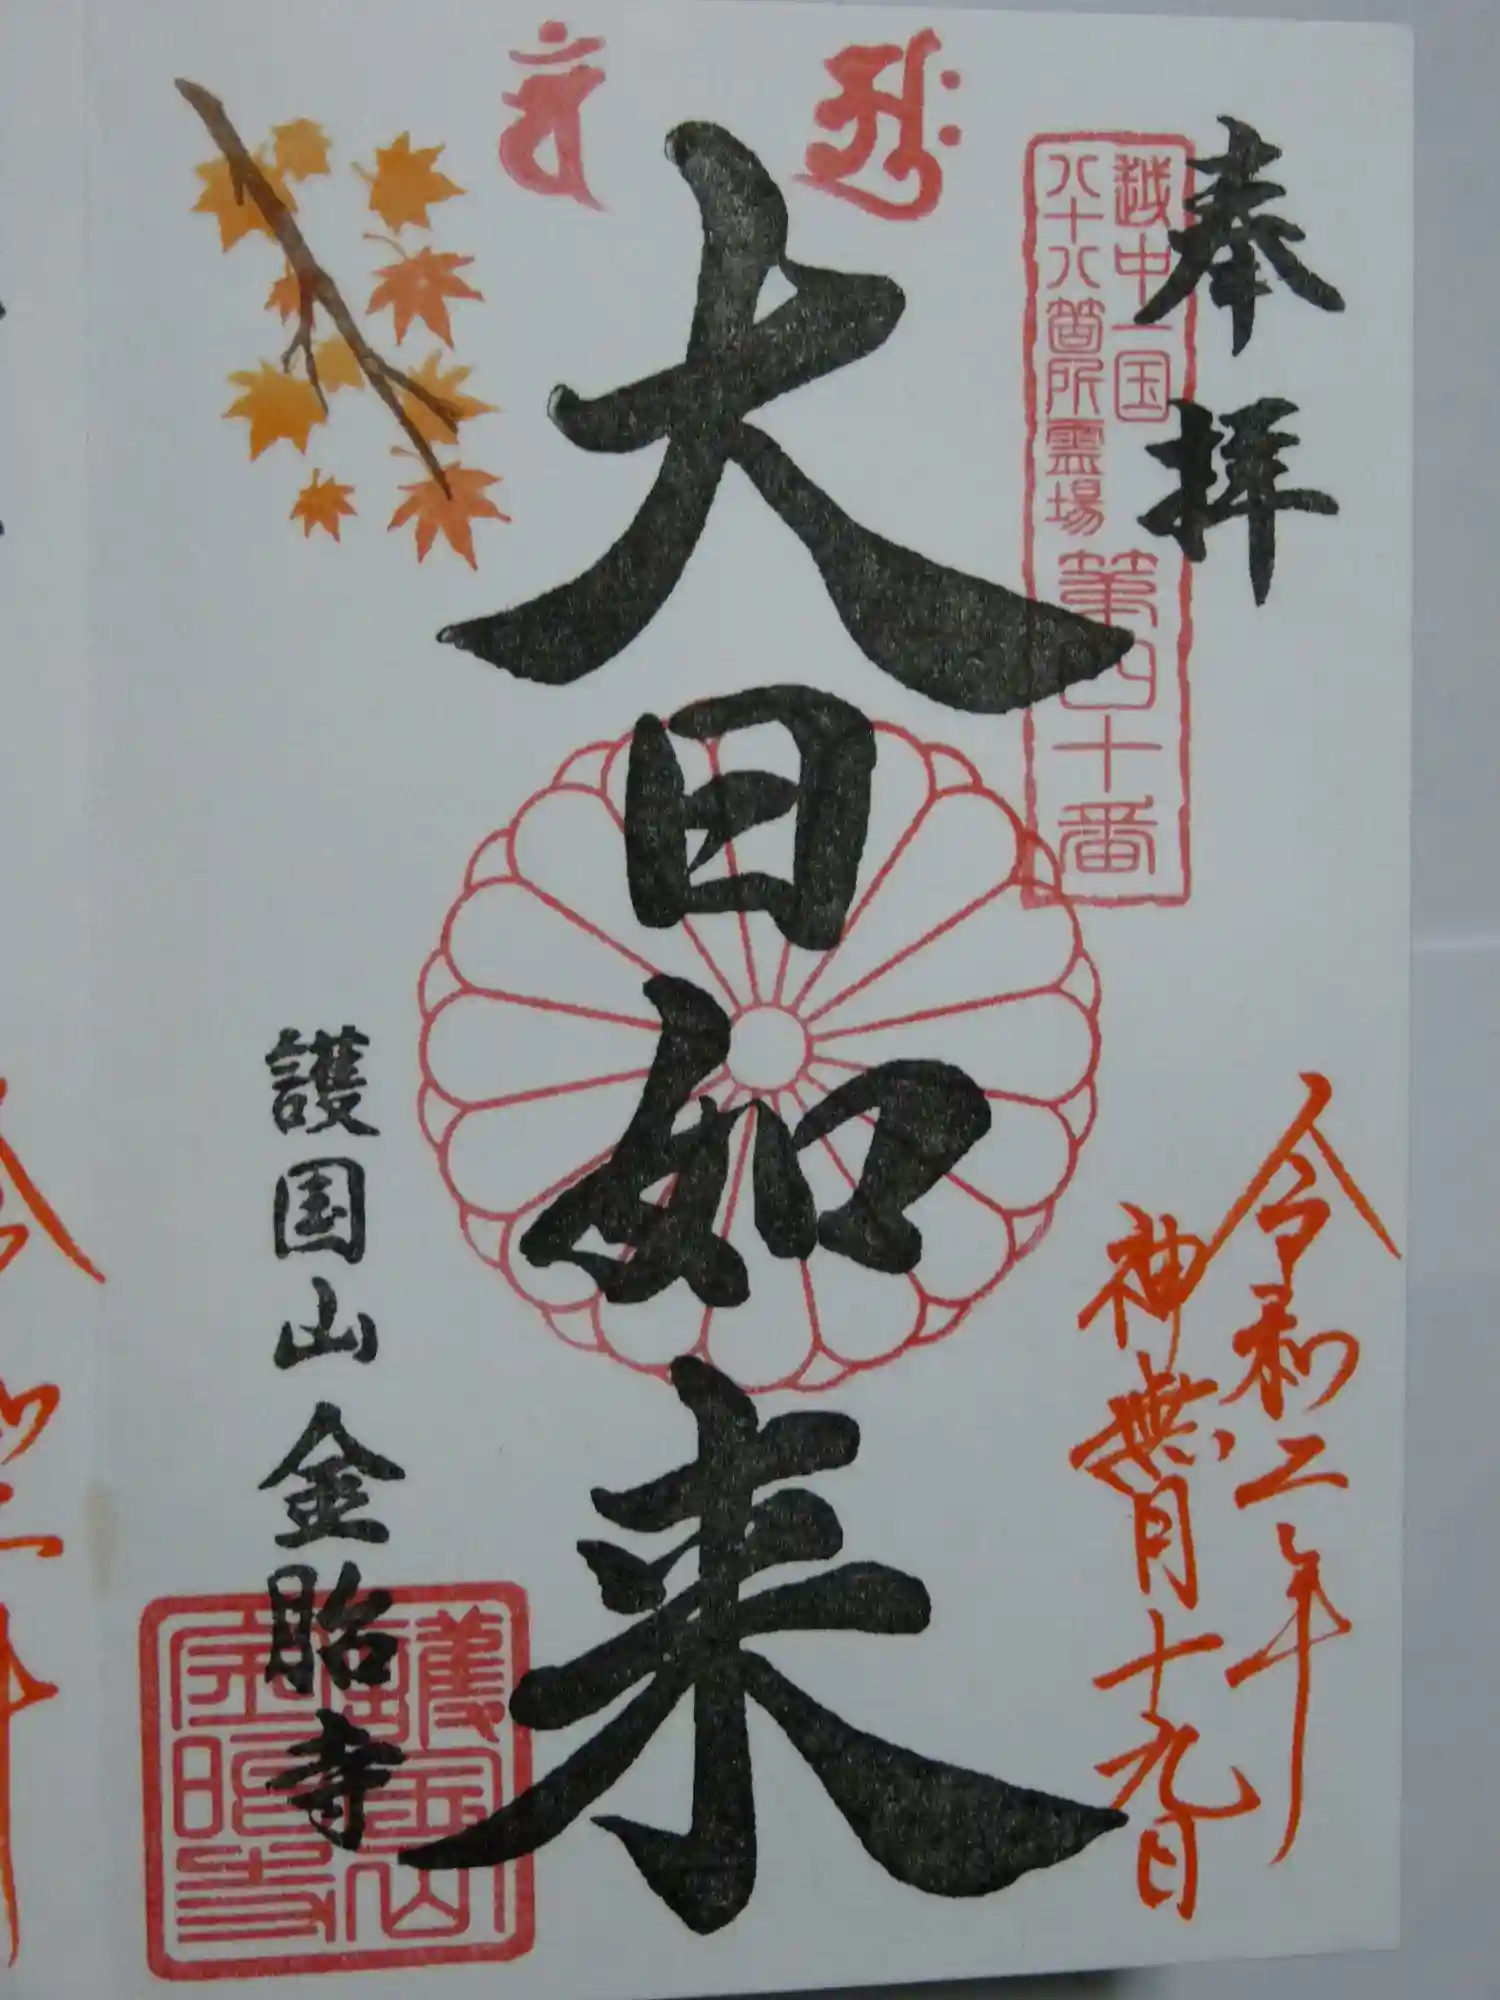 奉拝
越中一国
八十八箇所霊場
第四十番
令和二年
神無月十九日
大日如来
護国山金胎寺
護国山
金胎寺